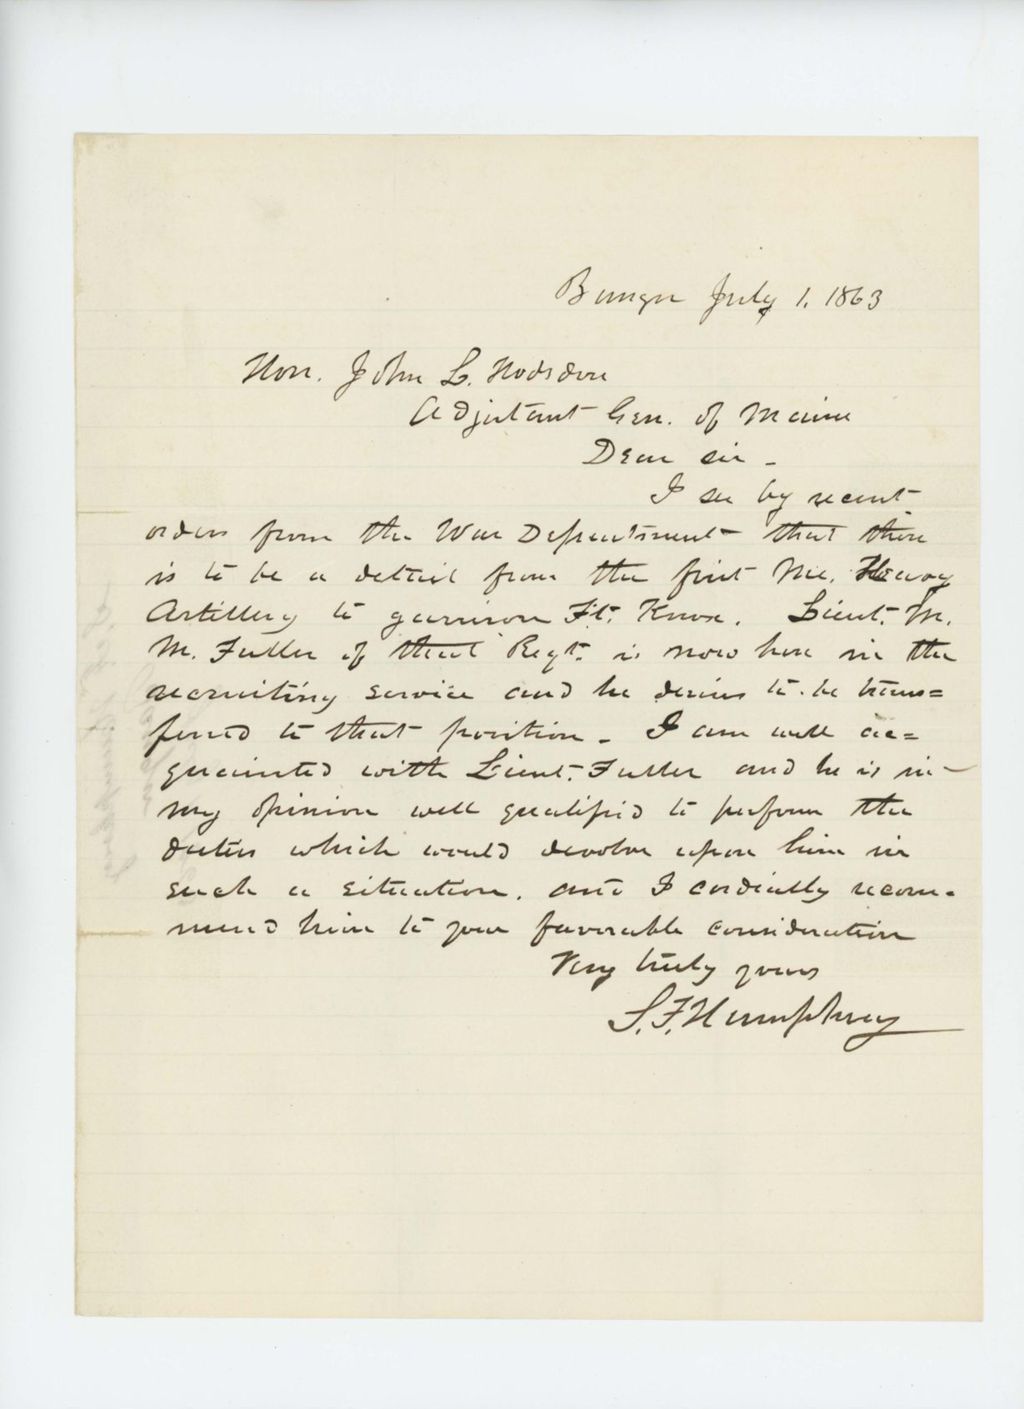 Bangor July 1. 1863
Hon. John L. Hodsdon
Adjutant Gen. of Maine
Dear sir -
I see by recent
orders from the War Department that there
is to be a detail from the first Me. Heavy
Artillery to garrison Ft. Knox. Lieut. M.
M. Fuller of that Regt. is now here in the
recruiting service and he desires to be trans=
ferred to that position - I am well ac=
quainted with Lieut. Fuller and he is in
my opinion well qualified to perform the
duties which would devolve upon him in
such a situation. and I cordially recom-
mend him to your favorable consideration
Very truly yours
S. F. Humphrey